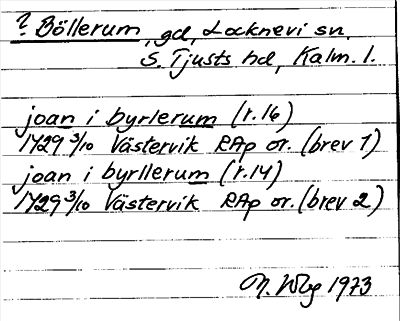 ? Böllerum, gd, Locknevi sn.
S. Tjusts hd, Kalm. l.
joan i byrlerum (r. 16)
1429 3/10 Västervik RAp or. (brev 1)
joan i byrllerum (r. 14)
1429 3/10 Västervik RAp or. (brev 2)
1973